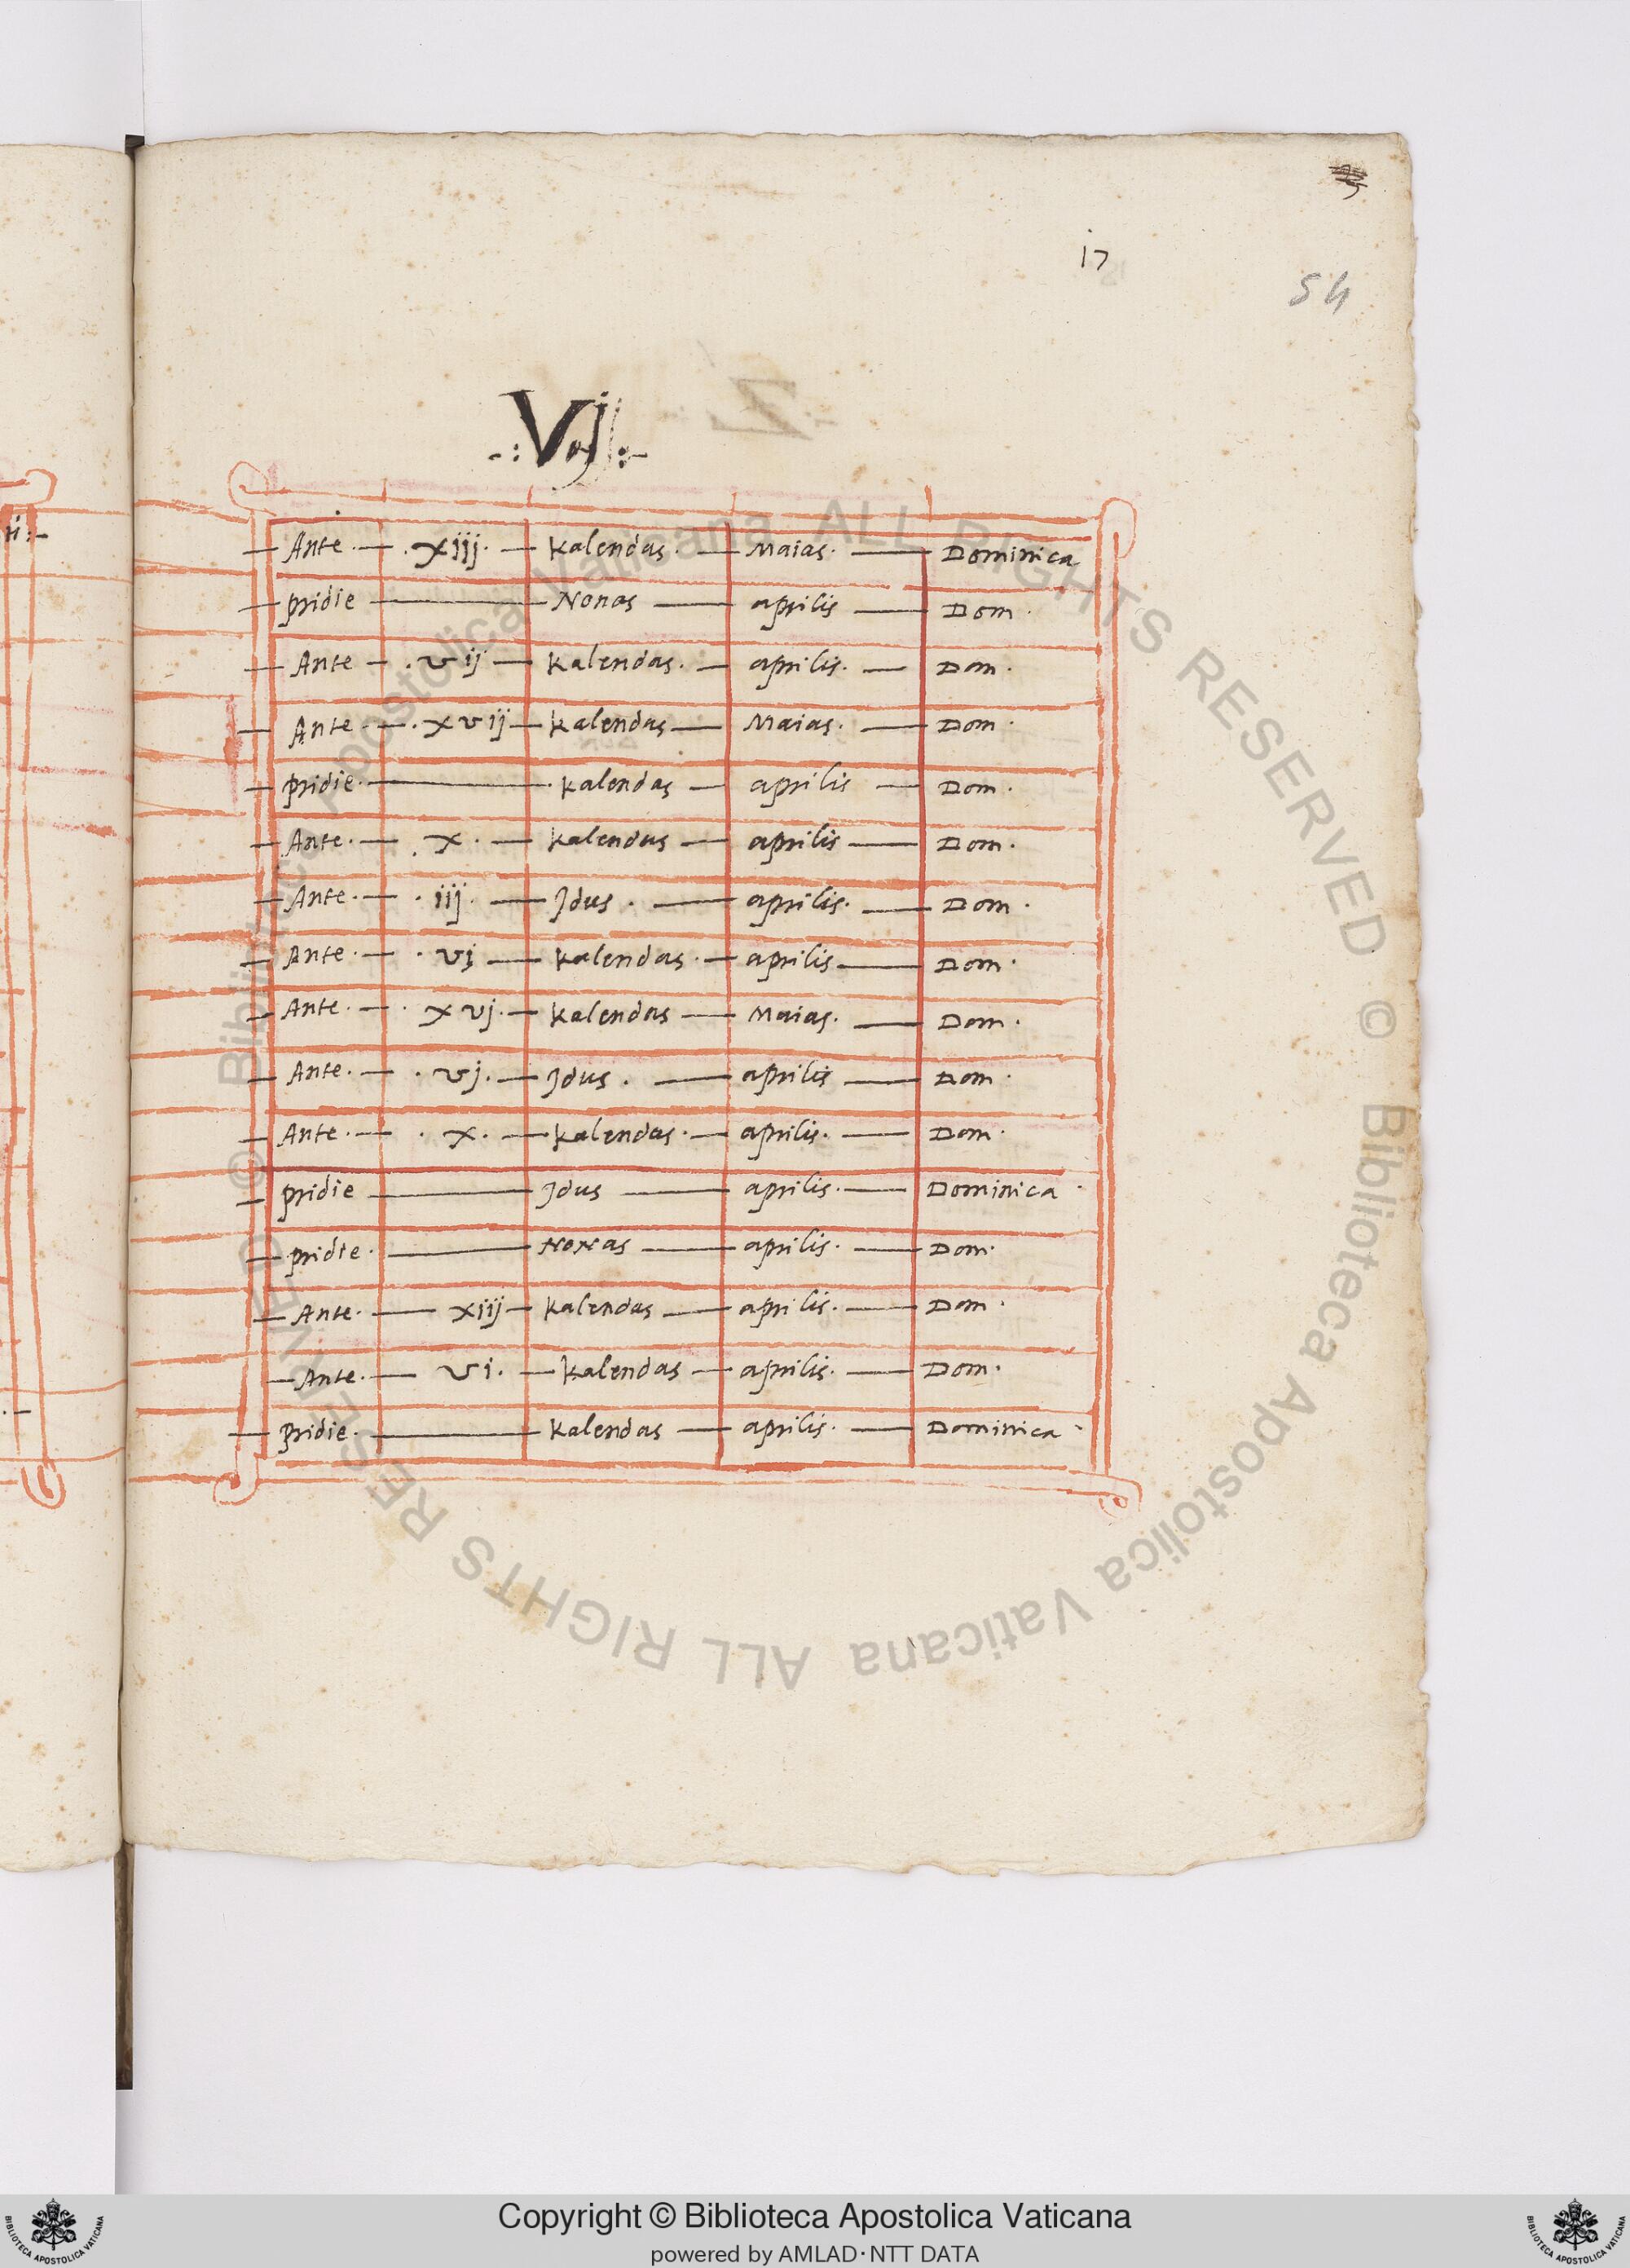 17
54
.:Vj:.
Ante. — .xiij. — kalendas. — Maias. — Dominica
pridie — Nonas — aprilis — Dom.
Ante — .vij — kalendas. — aprilis. — Dom.
Ante. — .xvij — kalendas — Maias. — Dom.
pridie. — kalendas — aprilis — Dom.
Ante. — .x. — kalendas — aprilis — Dom.
Ante. — .iij. — Jdus. — aprilis. — Dom.
Ante. — .vj — kalendas. — aprilis — Dom.
Ante. — .xvj. — kalendas — Maias. — Dom.
Ante. — .vj. — Jdus. — aprilis — Dom.
Ante. — .x. — kalendas. — aprilis. — Dom.
pridie — Jdus — aprilis. — Dominica.
pridie. — Nonas — aprilis. — Dom.
Ante. — xiij — kalendas — aprilis. — Dom.
Ante. — vi. — kalendas — aprilis. — Dom.
pridie. — kalendas — aprilis. — Dominica
© Biblioteca Apostolica Vaticana ALL RIGHTS RESERVED © Biblioteca Apostolica Vaticana ALL RIGHTS RESERVED
Copyright © Biblioteca Apostolica Vaticana
powered by AMLAD·NTT DATA
BIBLIOTECA APOSTOLICA VATICANA
BIBLIOTECA APOSTOLICA VATICANA